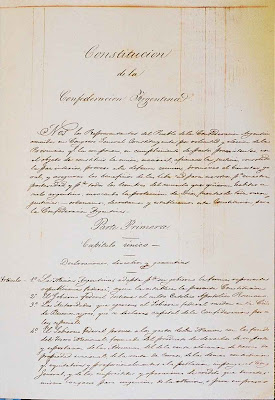 Constitucion
de la
Confederacion Argentina
Nos los Representantes del Pueblo de la Confederacion Argentina
reunidos en Congreso General Constituyente por voluntad y eleccion de las
Provincias que la componen, en cumplimiento de pactos preexistentes con
el objeto de constituir la union nacional, afianzar la justicia, consolidar
la paz interior, proveer a la defensa comun, promover el bienestar gene-
ral, y asegurar los beneficios de la libertad para nosotros, p.ª nuestra
posteridad, y p.ª todos los hombres del mundo que quieran habitar en
suelo argentino: invocando la proteccion de Dios, fuente de toda razon y
justicia: ordenamos, decretamos y establecemos esta Constitucion para
la Confederacion Argentina.
Parte Primera
Capitulo único
Declaraciones, derechos y garantias
Articulo 1º La Nacion Argentina adopta p.ª su gobierno la forma representativa
republicana federal, segun la establece la presente Constitucion
2º El Gobierno Federal sostiene el culto Catolico Apostolico Romano
3º Las Autoridades que ejercen el Gobierno federal residen en la Ciudad
de Buenos Ayres, que se declara capital de la Confederacion por u.
ley especial
4º El Gobierno Federal provee a los gastos de la Nacion con los fondos
del Tesoro Nacional, formado del producto de derechos de importa
y esportacion de las Aduanas, del de la venta o locacion de tierras de
propiedad nacional, de la renta de Correos, de las demas contribucion